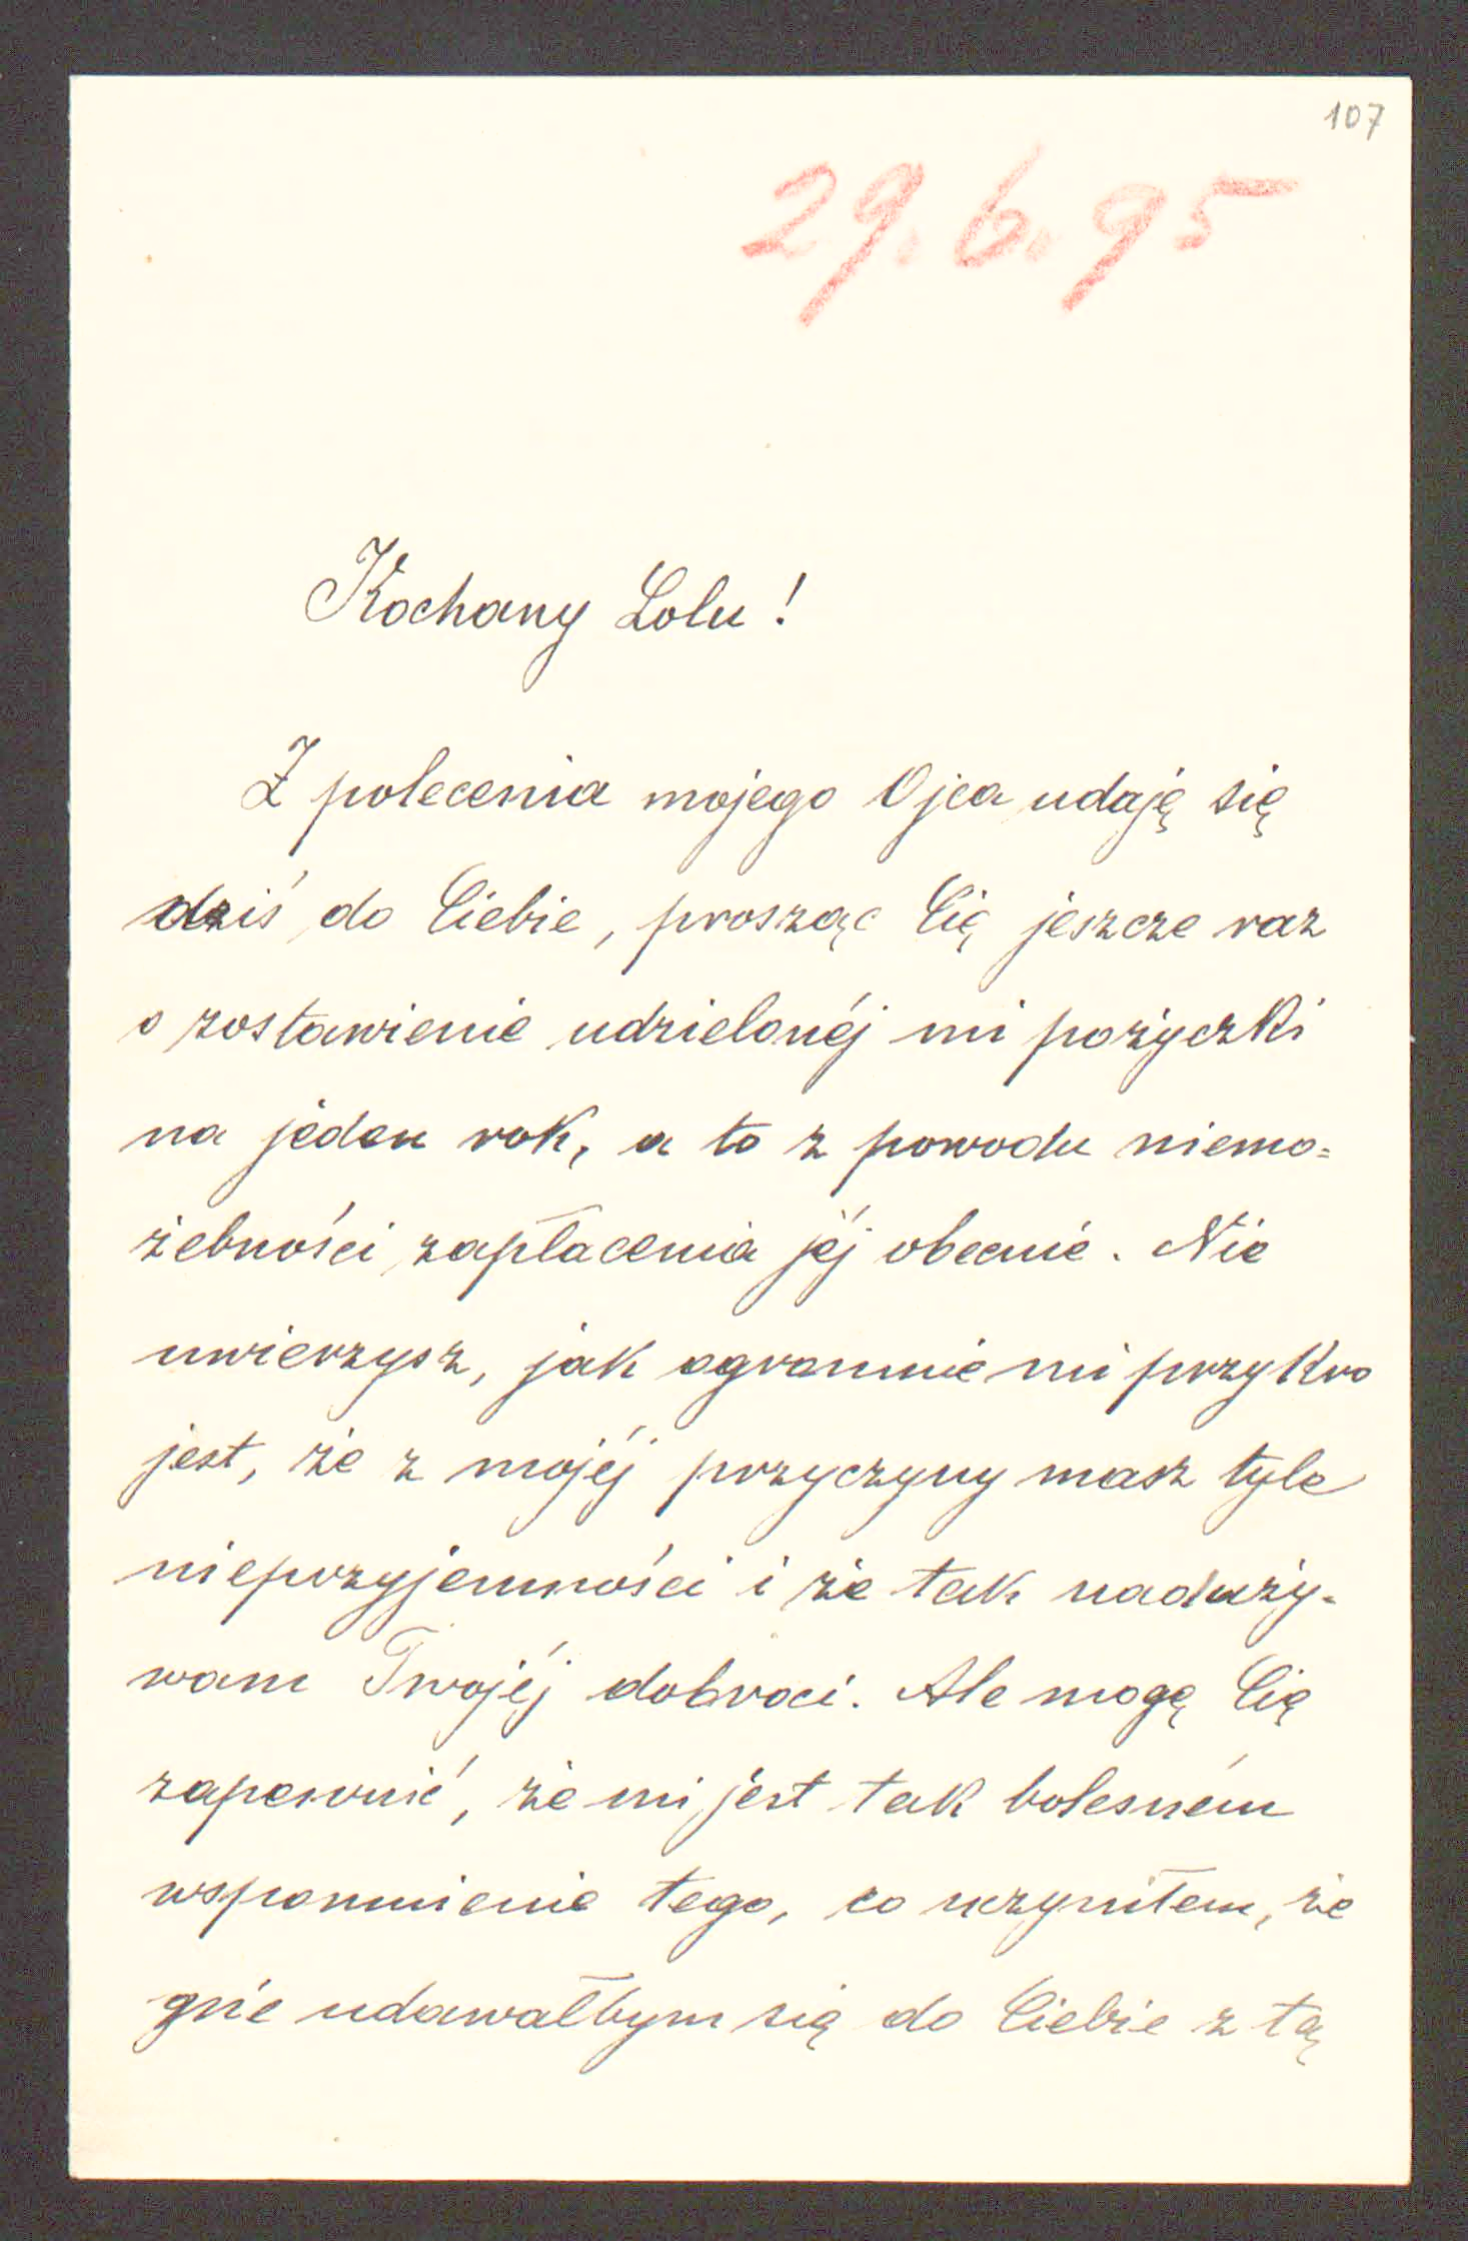 107
29.6.95
Kochany Lolu!
Z polecenia mojego Ojca udaję się
dziś do Ciebie, prosząc Cię jeszcze raz
o zostawienie udzielonéj mi pożyczki
na jeden rok, a to z powodu niemo=
żebności zapłacenia jéj obecnie. Nie
uwierzysz, jak ogromnie mi przykro
jest, że z mojéj przyczyny masz tyle
nieprzyjemności i że tak naduży-
wam Twojéj dobroci. Ale mogę Cię
zapewnić, że mi jest tak bolesném
wspomnienie tego, co uczyniłem, że
nie udawałbym się do Ciebie z tą